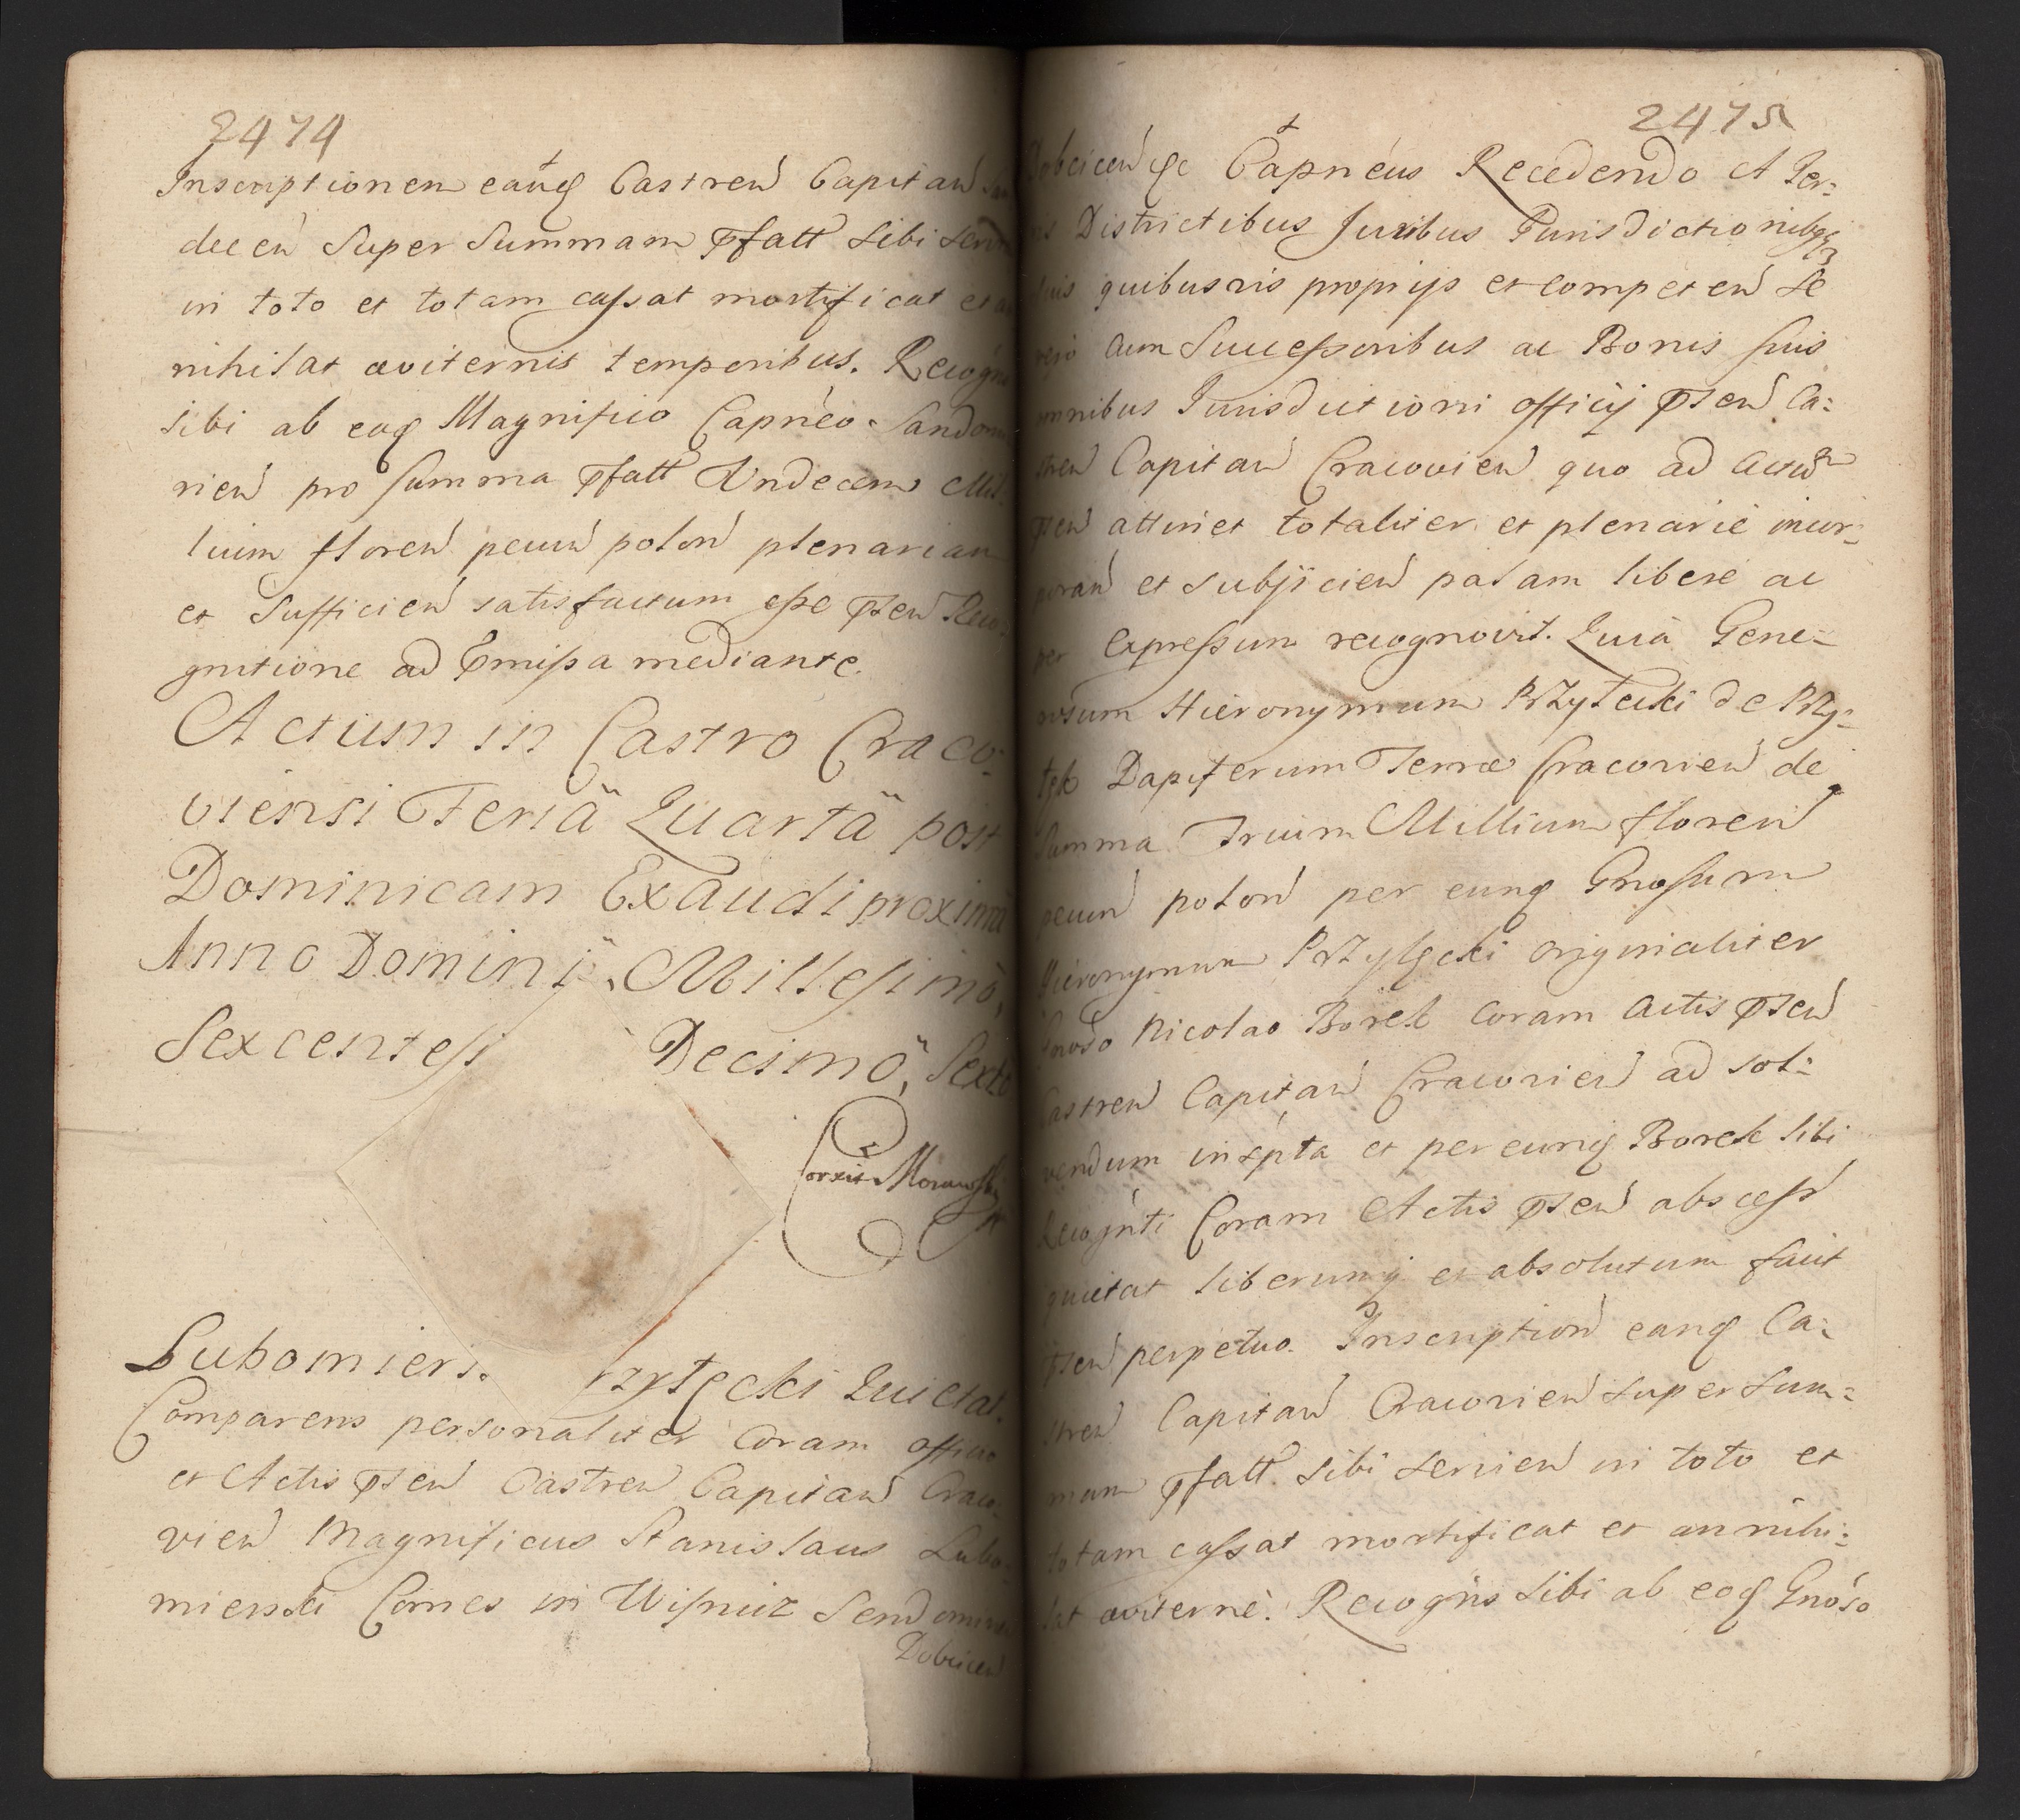 2474
Inscriptionem eanq Castren Capitan
decen Super Summam Pfatt Sibi Servien
in toto et totam cassat mortificat et an
nihilat aviternis temporibus. Recogn
sibi ab eoq Magnifico Capneo Sandomi
rien pro summa Pfatt Undecem Mil
lium floren pecun polon plenariam
et Sufficien satisfactum esse Psen Reco
gnitione ad Pmissa mediante.
Actum in Castro Craco-
viensi Feriä Quartä post
Dominicam Exaudi proximä
Anno Dominÿ Millesimo,
Sexcentesi Decimo, Sexto
Corrit Morawsky
Lubomiers. rzytecki Quietat.
Comparens personaliter Coram officio
et Actis Psen Castren Capitan Craco
vien Magnificus Stanislaus Lubo-
mierski Comes in Wisnicz Sendomir
Dobcicen
2475
Dobcicen qe Capneus Recedendo A Ter-
ris Districtibus Juribus Jurisdictionibq
suis quibusvis proprijs et competen Se
vero cum Successoribus ac Bonis suis
omnibus Jurisdictioni officij Psen Ca-
stren Capitan Cracovien quo ad actum
Psen attinet totaliter et plenarie incor-
poran et subjicien palam libere ac
per expressum recognovit. Quia Gene-
rosum Hieronymum Przytecki de Przy-
tyk Dapiferum Terræ Cracovien de
Summa Trium Millium floren
pecun polon per eunq Gnosum
Hieronymum Przytecki originaliter
Gnoso Nicolao Borek Coram actis Psen
Castren Capitan Cracovien ad sol-
vendum inscpta et per eunq Borek sibi
Recognti Coram Actis Psen abscess
quietat liberumq et absolutum facit
Psen perpetuo. Inscription eanq Ca-
stren Capitan Cracovien super sum-
mam Pfatt Sibi servien in toto et
totam cassat mortificat et annihi-
lat aviterne. Recogns sibi ab eoq Gnoso